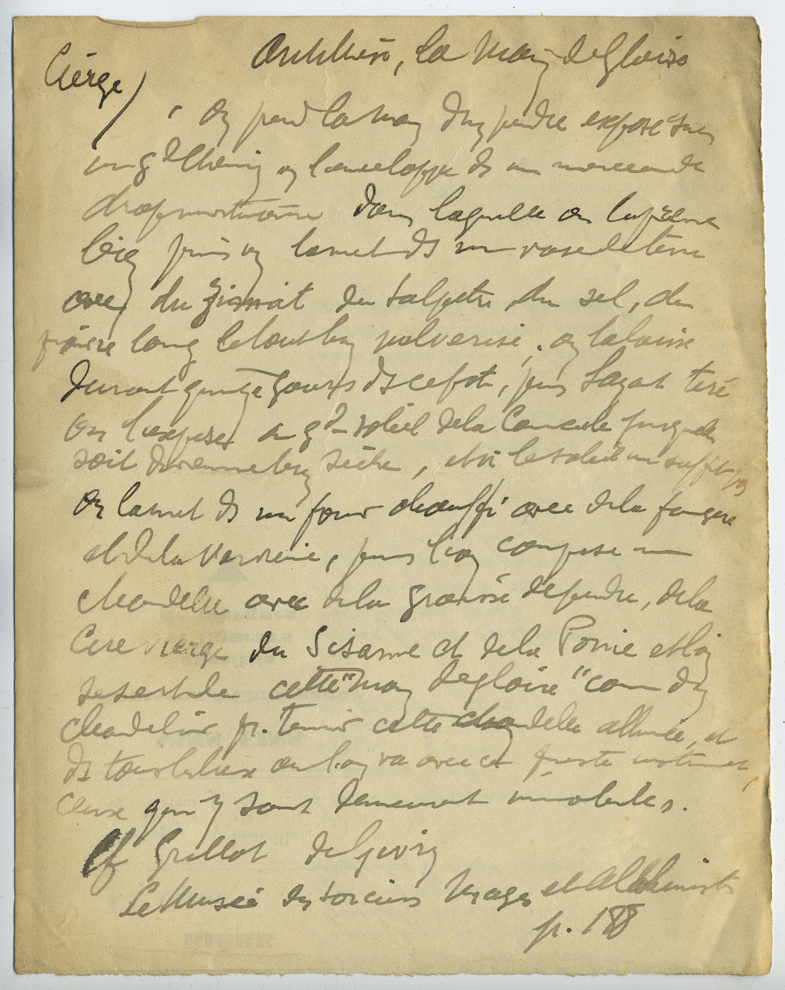 Cierge) la Main de gloire
on prend la main d'un pendu exposé sur
un gd chemin on l'enveloppe ds un morceau de
drap mortuaire dans laquelle on la presse
bien puis on la met ds un vase de terre
avec du zimmat du salpetre, du sel, du
poivre long le tout bien pulverisé, on la laisse
durant quinze jours ds ce pot, puis l'ayant tiré
on l'expose au gd soleil de la Canicule jusqu'à
soit devenue bien sèche, et si le soleil ne suffit pas
on la met ds un four chauffé avec de la fougere
et de la Verveine, puis l'on compose une
chandelle avec de la graisse de pendu, de la
Cire vierge du Sisame et de la Ponie et l'on
se sert de cette "main de gloire" comme d'un
chandelier pr. tenir cette chandelle allumée, et
ds tous les lieux ou l'on va avec ce
ceux qui y sont demeurent immobiles.
Cf Grillot de Givry
Le Musée des sorciers Mages et Alchimistes
p. 188